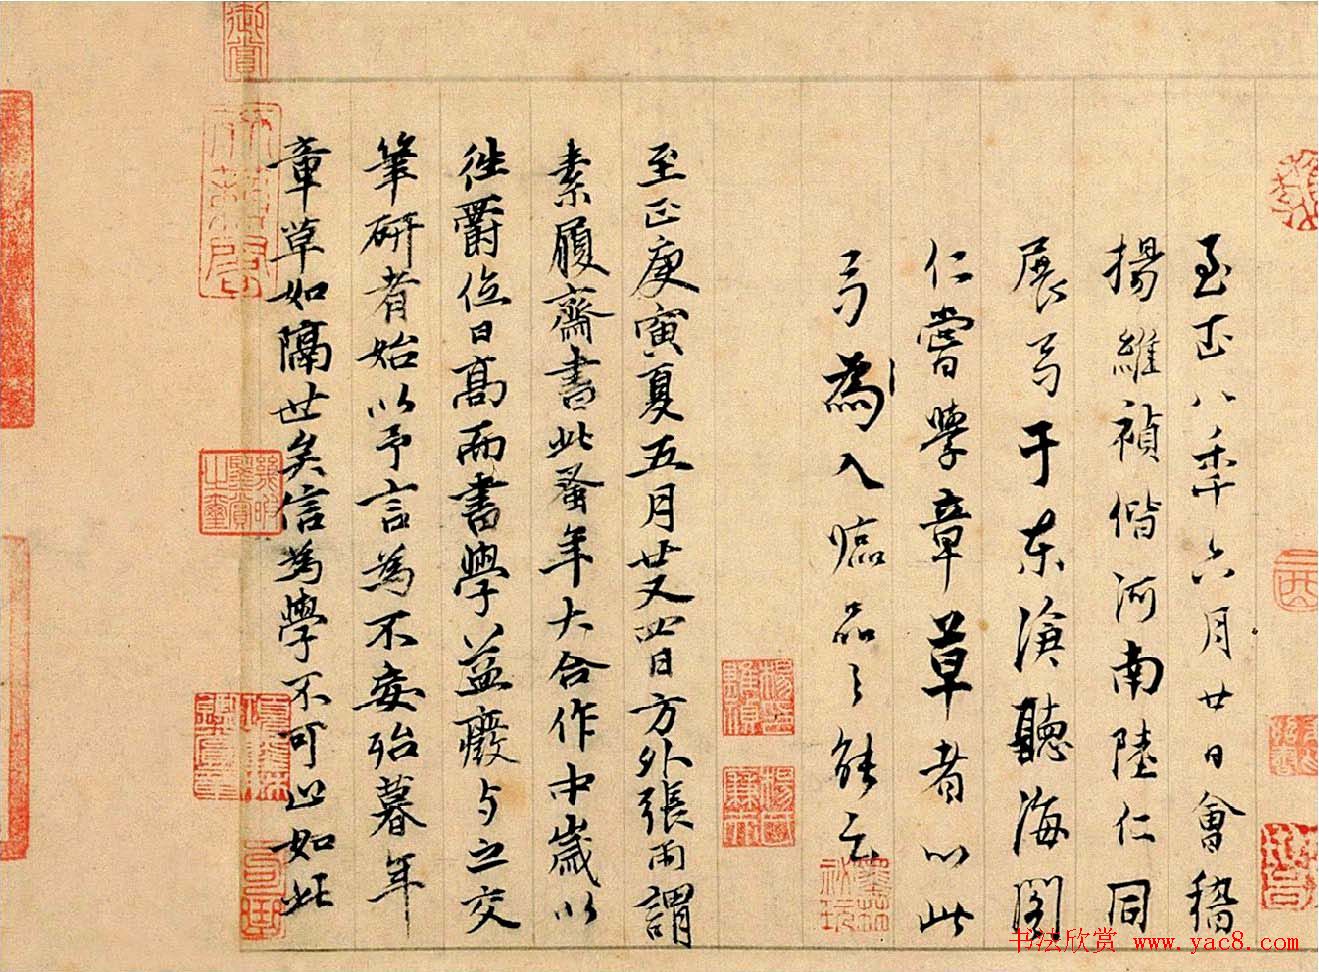 至正八年六月廿日會稽
揚維禎偕河南陸仁同
展弓于東滄聽海閣
仁嘗學章草者以此
弓為入臨品之能云
至正庚寅夏五月廿又四日方外張雨謂
素履齋書此蚤年大合作中歲以
往爵位日高而書學益廢与之交
筆研者始以予言為不妄殆暮年
章草如隔世矣信為學不可止如此
御賞
书法欣赏 www.yac8.com